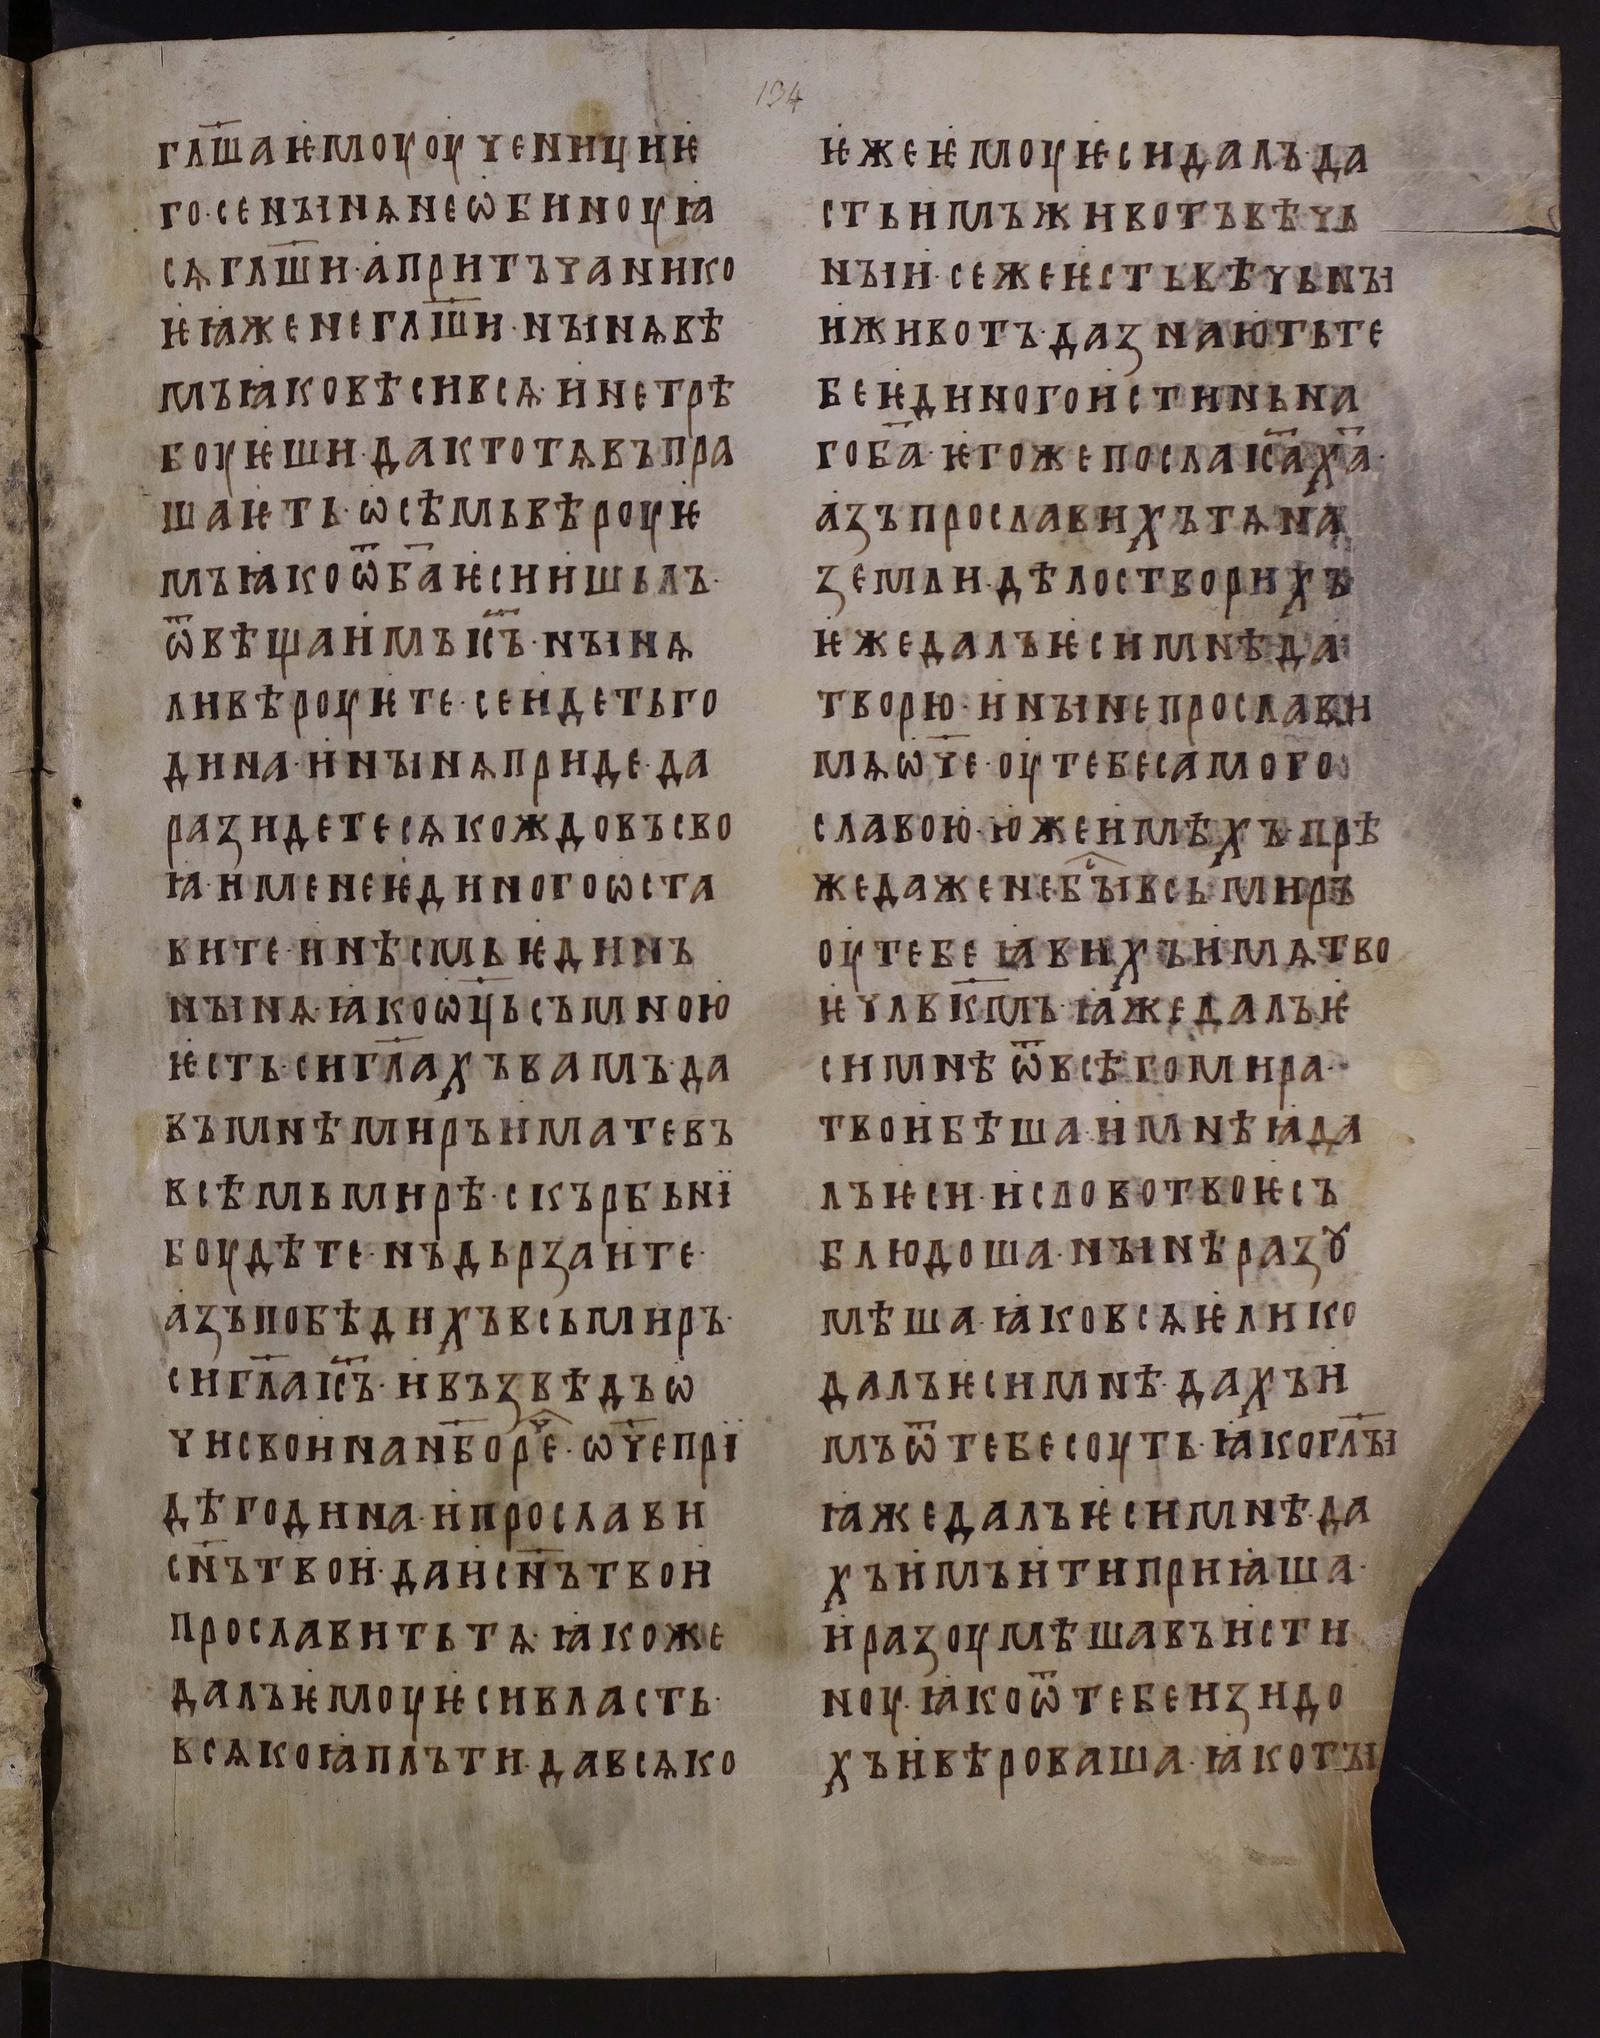 134
гл҃шаѥмоуоученицииѥ
го·сенъінѧнеѡбинѹꙗ
сѧгл҃ши·апритъчаникo
ѥꙗженегл҃ши·нъінѧвѣ
мъꙗковѣсивсѧ·инетрѣ
боуѥши·дактотѧвъпра
шаѥть·ѡсѣмьвѣроуѥ
мъꙗкоѿб҃аѥсиишьлъ·
ѿвѣщаимъıс҃ъ·нъінѧ
ливѣроуѥте·сеидетьго
дина·инъінѧприде·да
разидетесѧкождовъсво
ꙗ·именеѥдиногоѡста
вите·инѣсмьѥдинъ
нъінѧ·ꙗкоѡц҃ьсъмною
ѥсть·сигл҃ахъвамъ·да
въмнѣмиръиматевъ
всѣмьмирѣ·скърбьнї
боудѣте·нъдьрзаите·
азъпобѣдихъвсьмиръ·
сигл҃аıс҃ъ·ивъзвѣдъѡ
чисвоинан҃борⷱ҇е·ѡч҃епрї
дѣгодина·ипрослави
сн҃ътвои·даисн҃ътвои
прославитьтѧ·ꙗкоже
далъѥмоуѥсивласть·
всѧкоꙗплъти·давсѧко
ѥжеѥмоуѥсидалъ·да
стьимъживотъвѣчь
нъіи·сежеѥстьвѣчьнъі
иживотъ·дазнаютьте
беѥдиногоистиньна
гоб҃а·ѥгожепослаıс҃ах҃а·
азъпрославихътѧна
земли·дѣлостворихъ
ѥжедалъѥсимнѣда
творю·инъінепрослави
мѧѡч҃е·оутебесамого
славою·южеимѣхъ·прѣ
жедаженебъⷭ҇івсьмиръ
оутебеꙗвихъимѧтво
ѥчлвк҃мъ·ꙗжедалъѥ
симнѣѿвсѣгомира·
твоибѣша·имнѣꙗда
лъѥси·исловотвоѥсъ
блюдоша·нъінѣразꙋ
мѣша·ꙗковсѧѥлико
далъѥсимнѣ·дахъи
мъѿтебесоуть·ꙗкогл҃ъі
ꙗжедалъѥсимнѣ·да
хъимъитиприꙗша·
иразоумѣшавъисти
ноу·ꙗкоѿтебеизидо
хъивѣроваша·ꙗкотъі